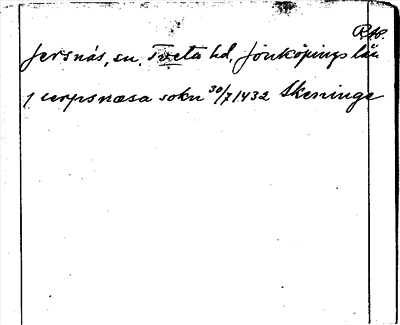 RAp.
Jersnäs, sn. Tveta hd, Jönköpings län
j uerpsnæsa sokn 30/7 1432 Skeninge